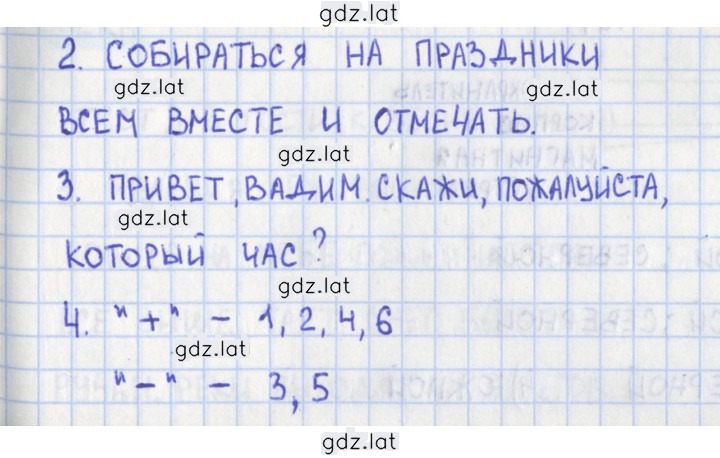 gdz.lat
2. СОБИРАТЬСЯ НА ПРАЗДНИКИ
gdz.lat gdz.lat
ВСЕМ ВМЕСТЕ И ОТМЕЧАТЬ.
gdz.lat
3. ПРИВЕТ, ВАДИМ. СКАЖИ, ПОЖАЛУЙСТА,
gdz.lat
КОТОРЫЙ ЧАС?
gdz.lat
4. "+" - 1, 2, 4, 6
gdz.lat
"-" - 3, 5
gdz.lat